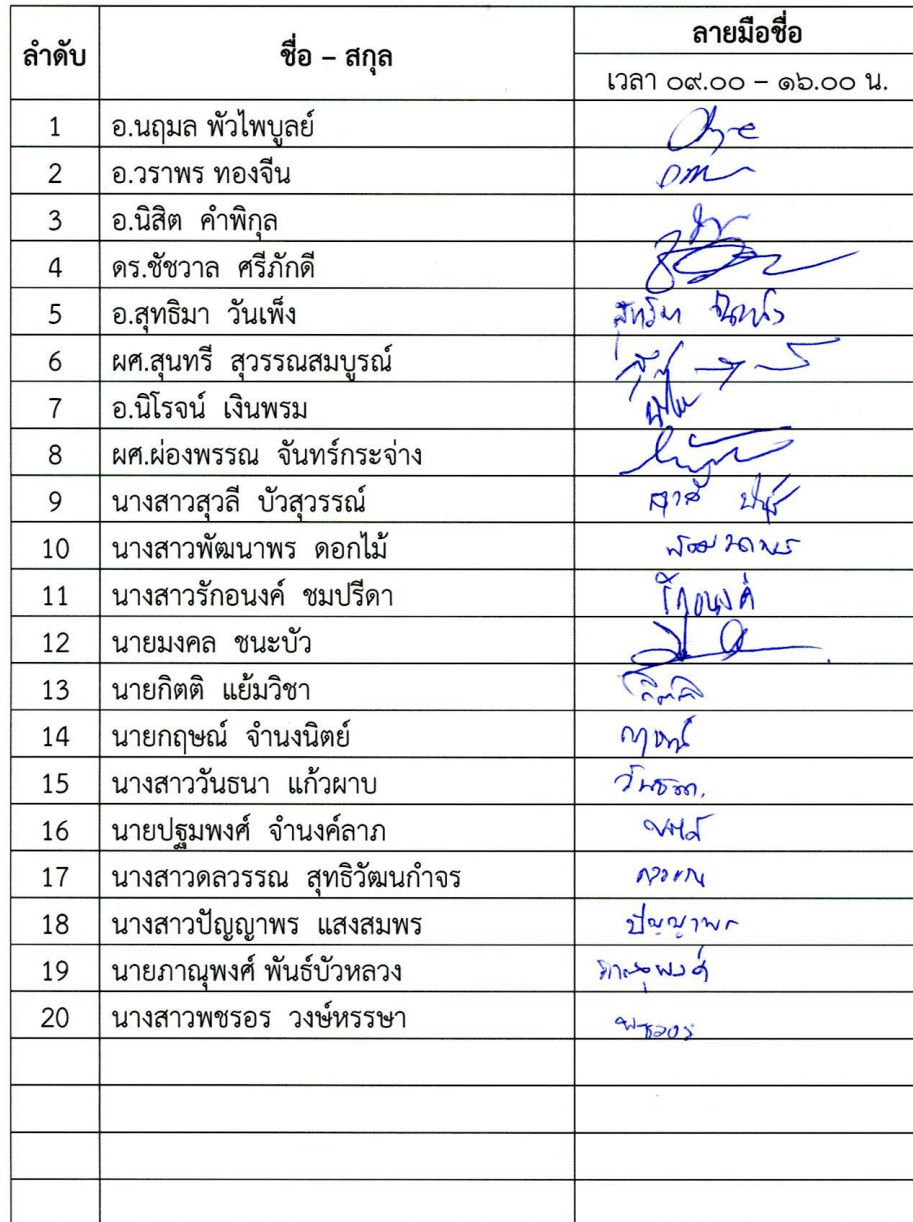 ลำดับ ชื่อ – สกุล ลายมือชื่อ
เวลา ๐๙.๐๐ – ๑๖.๐๐ น.
1 อ.นฤมล พัวไพบูลย์
2 อ.วราพร ทองจีน
3 อ.นิสิต คำพิกุล
4 ดร.ชัชวาล ศรีภักดี
5 อ.สุทธิมา วันเพ็ง
6 ผศ.สุนทรี สุวรรณสมบูรณ์
7 อ.นิโรจน์ เงินพรม
8 ผศ.ผ่องพรรณ จันทร์กระจ่าง
9 นางสาวสุวลี บัวสุวรรณ์
10 นางสาวพัฒนาพร ดอกไม้ พัฒนาพร
11 นางสาวรักอนงค์ ชมปรีดา รักอนงค์
12 นายมงคล ชนะบัว
13 นายกิตติ แย้มวิชา กิตติ
14 นายกฤษณ์ จำนงนิตย์ กฤษณ์
15 นางสาววันธนา แก้วผาบ วันธนา
16 นายปฐมพงศ์ จำนงค์ลาภ
17 นางสาวดลวรรณ สุทธิวัฒนกำจร
18 นางสาวปัญญาพร แสงสมพร ปัญญาพร
19 นายภาณุพงศ์ พันธ์บัวหลวง ภาณุพงศ์
20 นางสาวพชรอร วงษ์หรรษา พชรอร